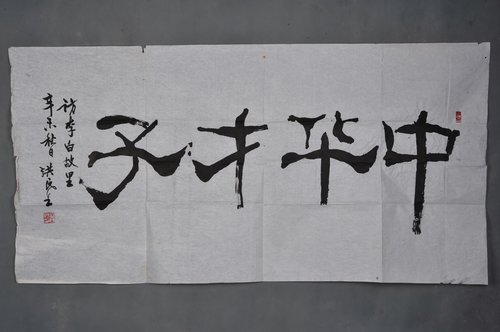 中华才子
访李白故里
辛未秋日 洪良玉